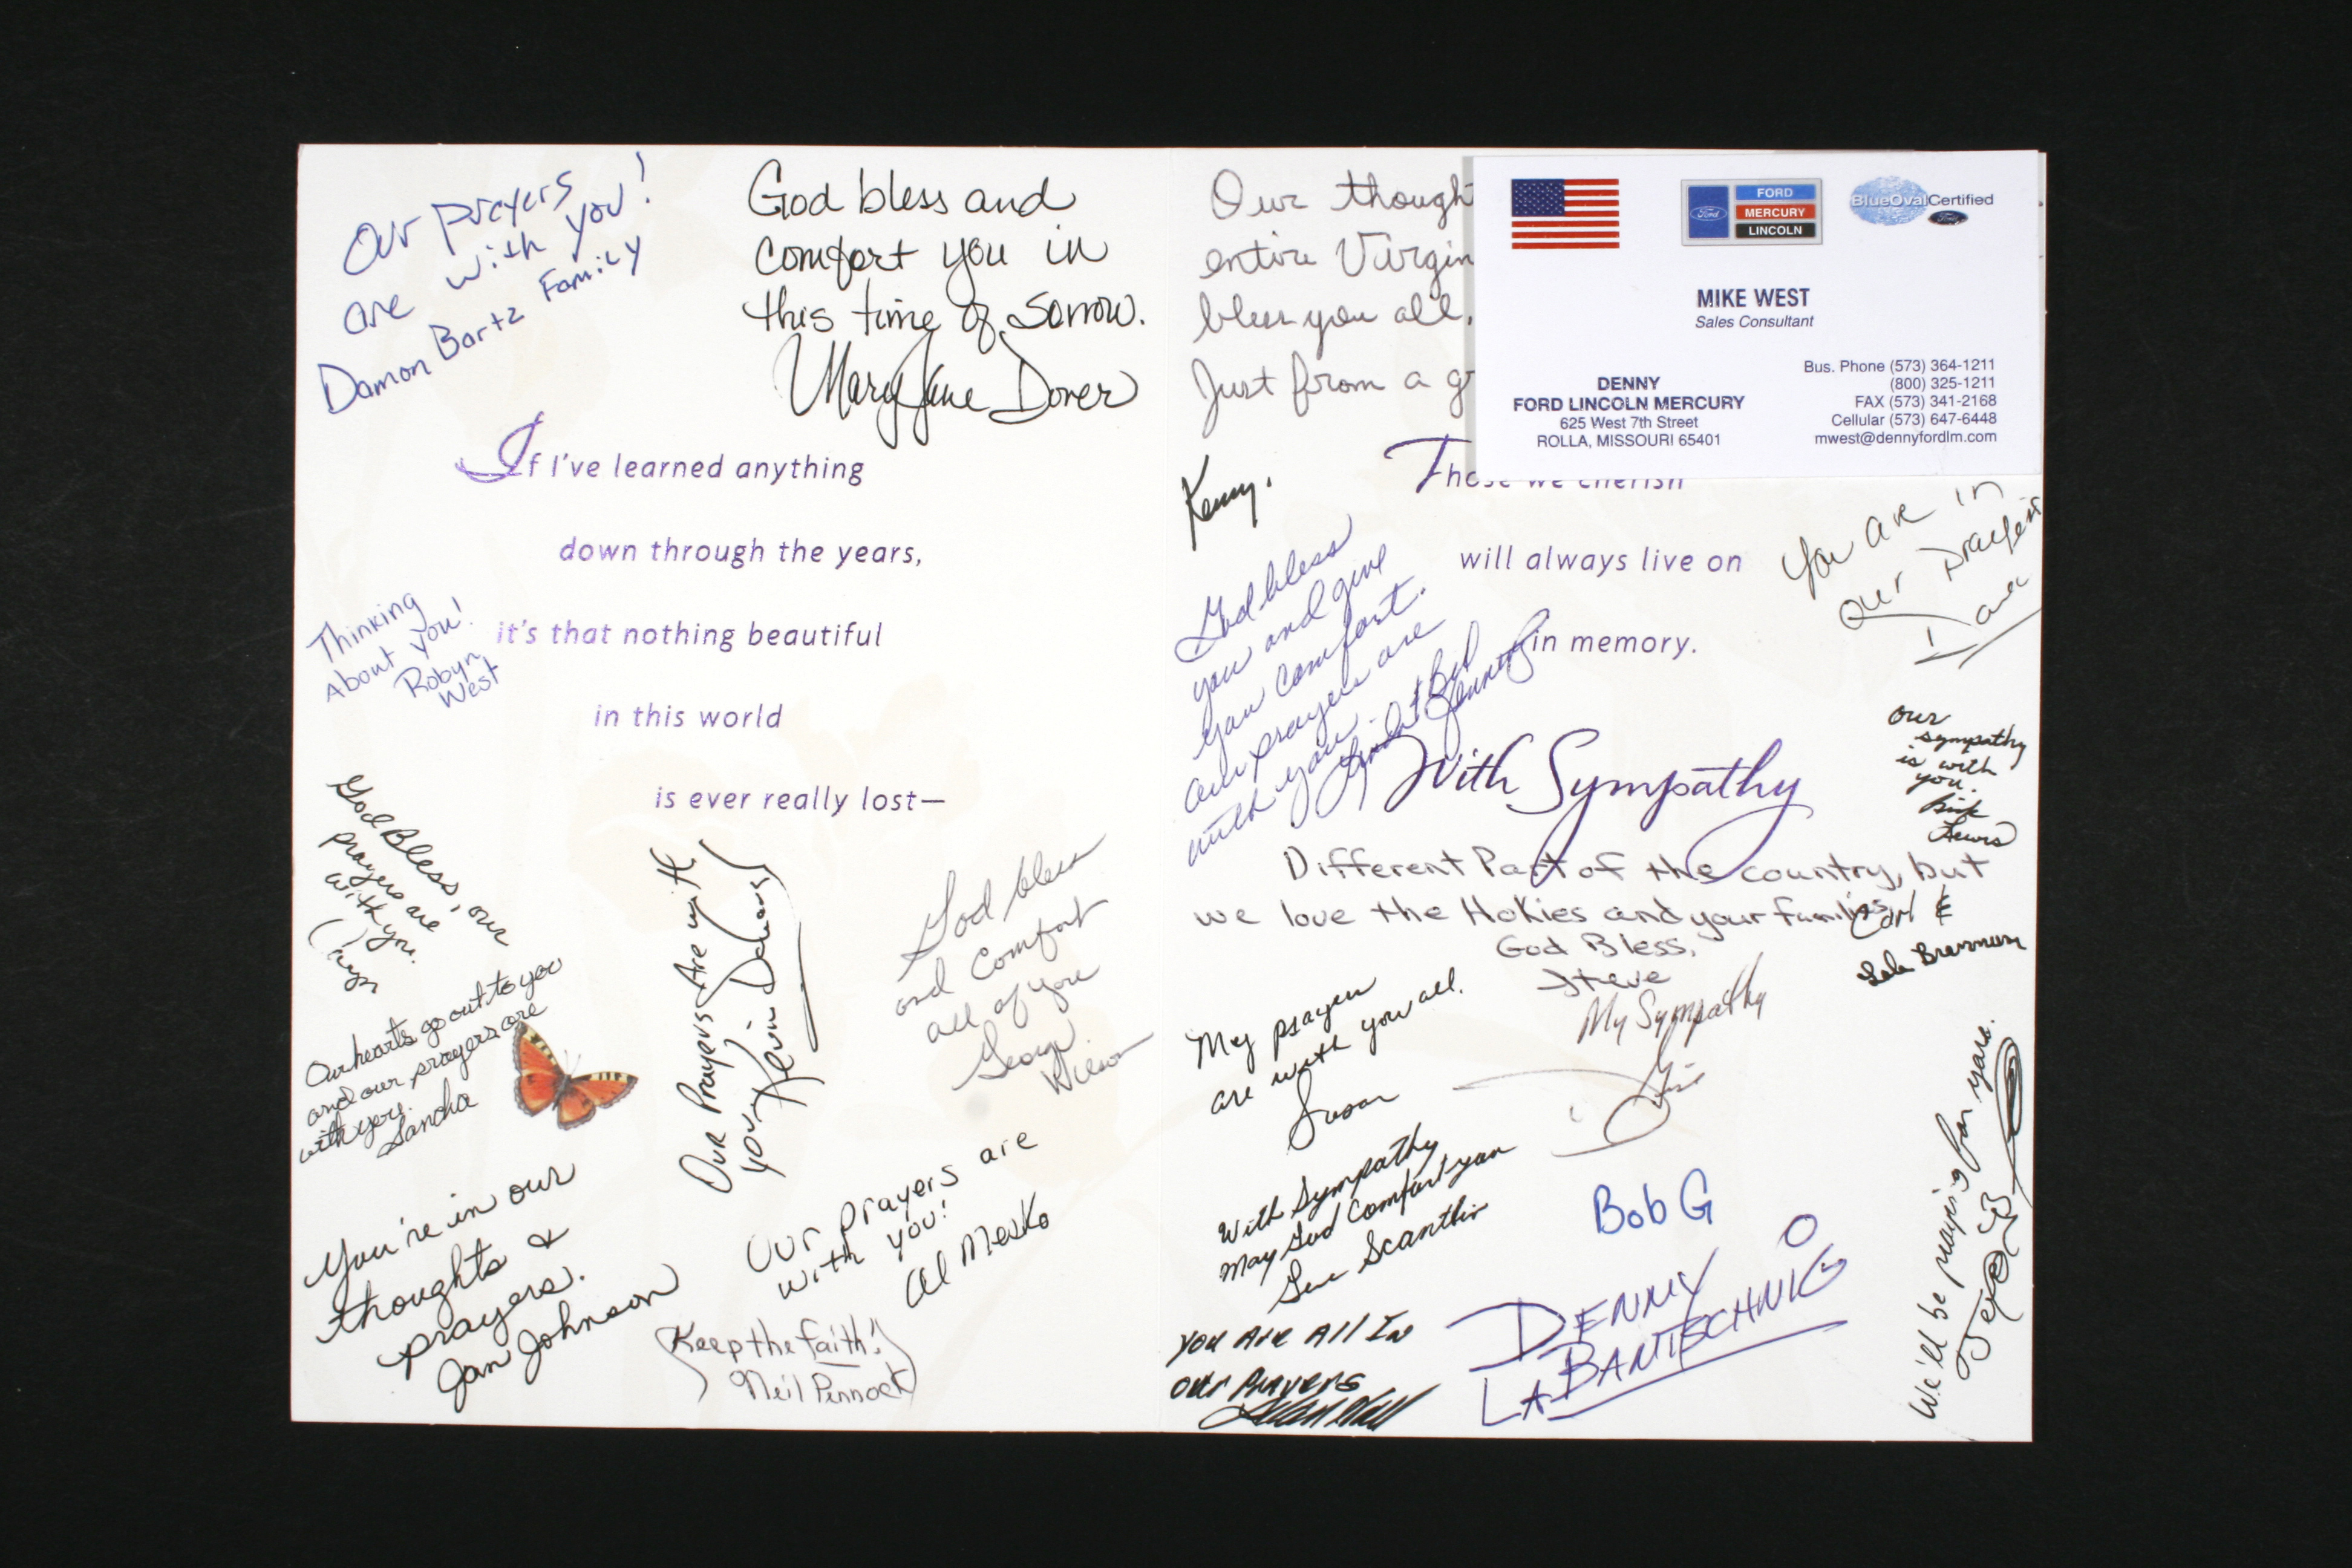 Our prayers
are with you!
Damon Bartz Family
God bless and
comfort you in
this time of sorrow.
Mary Jane Dover
If I've learned anything
down through the years,
it's that nothing beautiful
in this world
is ever really lost—
Thinking
About you!
Robyn
West
God Bless, our
prayers are
with you.
Our hearts go out to you
and our prayers are
with you.
Sandra
Our Prayers Are with
you
Kevin
God bless
and comfort
all of you
George
Wilson
You're in our
thoughts &
prayers.
Jan Johnson
Our prayers are
with you!
Al Mesko
Keep the faith!
Neil Pennock
Our though
entire Virgin
bless you all.
Just from a gr
FORD
MERCURY
LINCOLN
Ford
BlueOval Certified
MIKE WEST
Sales Consultant
DENNY
FORD LINCOLN MERCURY
625 West 7th Street
ROLLA, MISSOURI 65401
Bus. Phone (573) 364-1211
(800) 325-1211
FAX (573) 341-2168
Cellular (573) 647-6448
mwest@dennyfordlm.com
Those we cherish
will always live on
in memory.
With Sympathy
Kenny.
God bless
you and give
you comfort.
Our prayers are
with you.
You are in
our prayers
Dave
Our
sympathy
is with
you.
Lewis
Different Part of the country, but
we love the Hokies and your families
God Bless,
Steve
Carl &
Lola
My Sympathy
My prayers
are with you all.
Susan
With Sympathy
May God Comfort you
Scantlin
Bob G
You Are All In
our Prayers
DENNY
LABANTSCHNIG
We'll be praying for years.